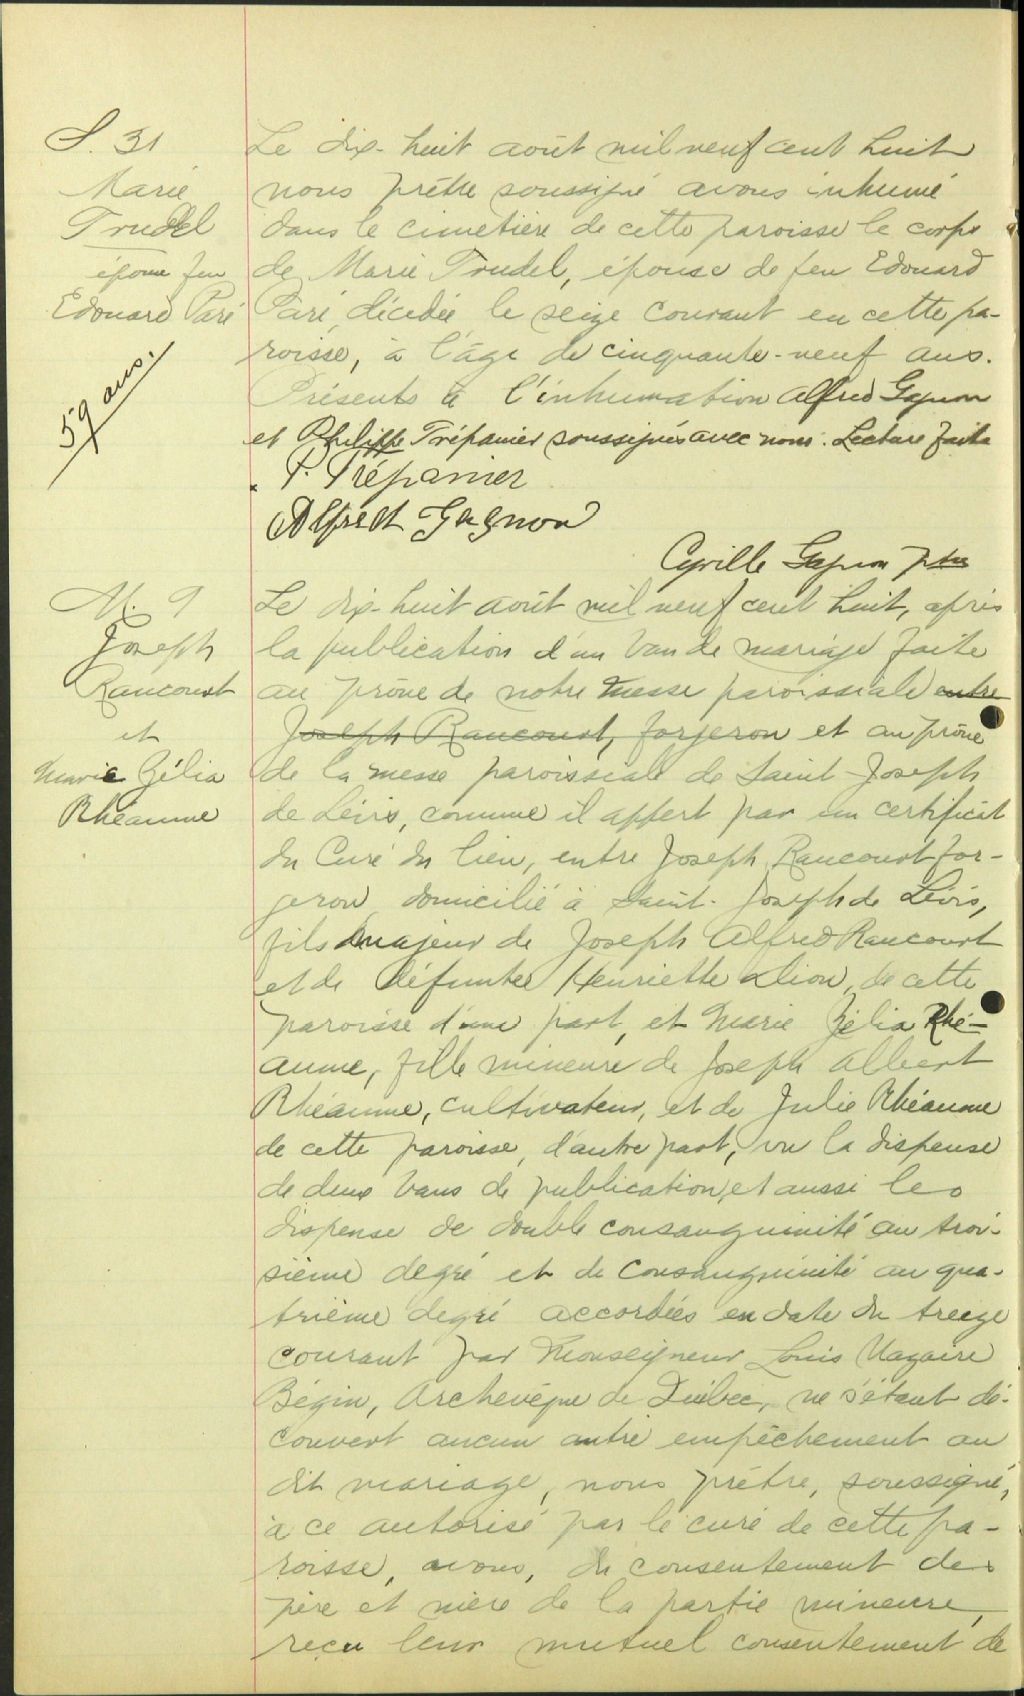 S. 31
Marie
Trudel
épouse feu
Edouard Paré
59 ans.
Le dix-huit août mil neuf cent huit
nous prêtre soussigné avons inhumé
dans le cimetière de cette paroisse le corps
de Marie Trudel, épouse de feu Edouard
Paré, décédée le seize courant en cette pa-
roisse, à l'âge de cinquante-neuf ans.
Présents à l'inhumation Alfred Gagnon
et Philippe Trépanier soussignés avec nous. Lecture faite
P. Trépanier
Alfred Gagnon
Cyrille Gagnon ptre
M. 9
Joseph
Rancourt
et
Marie Zélia
Rhéaume
Le dix-huit août mil neuf cent huit, après
la publication d'un ban de mariage faite
au prône de notre messe paroissiale entre
Joseph Rancourt, forgeron et au prône
de la messe paroissiale de Saint-Joseph
de Lévis, comme il appert par un certificat
du Curé du lieu, entre Joseph Rancourt for-
geron domicilié à Saint-Joseph de Lévis,
fils majeur de Joseph Alfred Rancourt
et de défunte Henriette Dion, de cette
paroisse d'une part, et Marie Zélia Rhé-
aume, fille mineure de Joseph Albert
Rhéaume, cultivateur, et de Julie Rhéaume
de cette paroisse, d'autre part, vu la dispense
de deux bans de publication, et aussi le
dispense de double consanguinité au troi-
sième degré et de consanguinité au qua-
trième degré accordées en date du treize
courant par Monseigneur Louis Nazaire
Bégin, Archevêque de Québec, ne s'étant dé-
couvert aucun autre empêchement au
dit mariage, nous prêtre, soussigné,
à ce autorisé par le curé de cette pa-
roisse, avons, du consentement des
père et mère de la partie mineure,
reçu leur mutuel consentement de